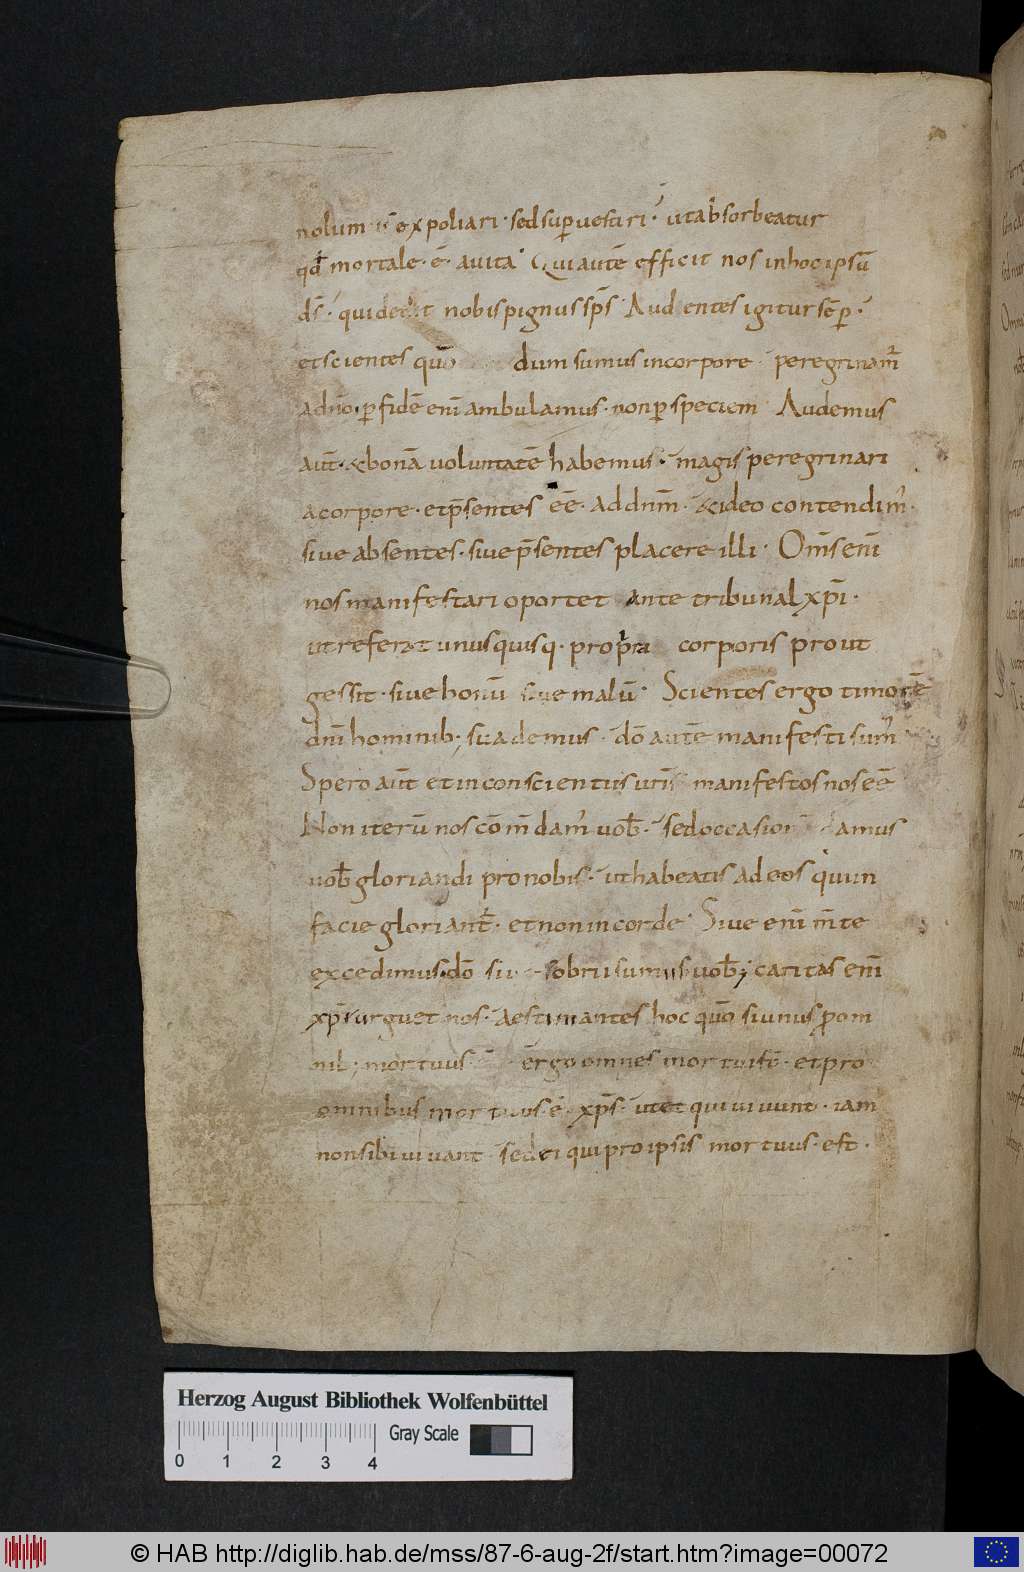 nolum᷒ expoliari · sed sup̄uestiri · ut absorbeatur
qđ mortale · ē · a uita · Qui autē efficit nos in hoc ipsū
d̄s · qui dedit nobis pignus sp̄s · Audentes igitur sēp̄ ·
et scientes quō dum sumus in corpore · peregrinam᷒
a dn̄o · p̄ fidē enī ambulamus · non p̄ speciem · Audemus
aut̄ · & bonā uoluntatē habemus · magis peregrinari
a corpore · et p̄sentes eē · ad dnm̄ · & ideo contendim᷒ ·
siue absentes · siue p̄sentes placere illi · Om̄s enī
nos manifestari oportet ante tribunal xp̄i ·
ut referat unusquisq· propria corporis prout
gessit · siue bonū siue malū · Scientes ergo timorē
dnī hominib; suademus · dō autē manifesti sum᷒
Spero aut̄ et in conscientiis ur̄is manifestos nos eē
Non iterū nos cōm̄dam᷒ uob̄ · sed occasion damus
uob̄ gloriandi pro nobis · ut habeatis ad eos qui in
facie gloriant᷒ · et non in corde · Siue enī m̄te
excedimus · dō siue sobrii sumus uob̄; caritas enī
xp̄i urguet nos · Aestimantes hoc quō si unus p̄ om
nib; mortuus ergo omnes mortui st̄ · et pro
omnibus mortuus · ē · xp̄s · ut et qui uiuunt · iam
non sibi uiuant · sed ei qui pro ipsis mortuus · est ·
Herzog August Bibliothek Wolfenbüttel
Gray Scale
0 1 2 3 4
© HAB http://diglib.hab.de/mss/87-6-aug-2f/start.htm?image=00072